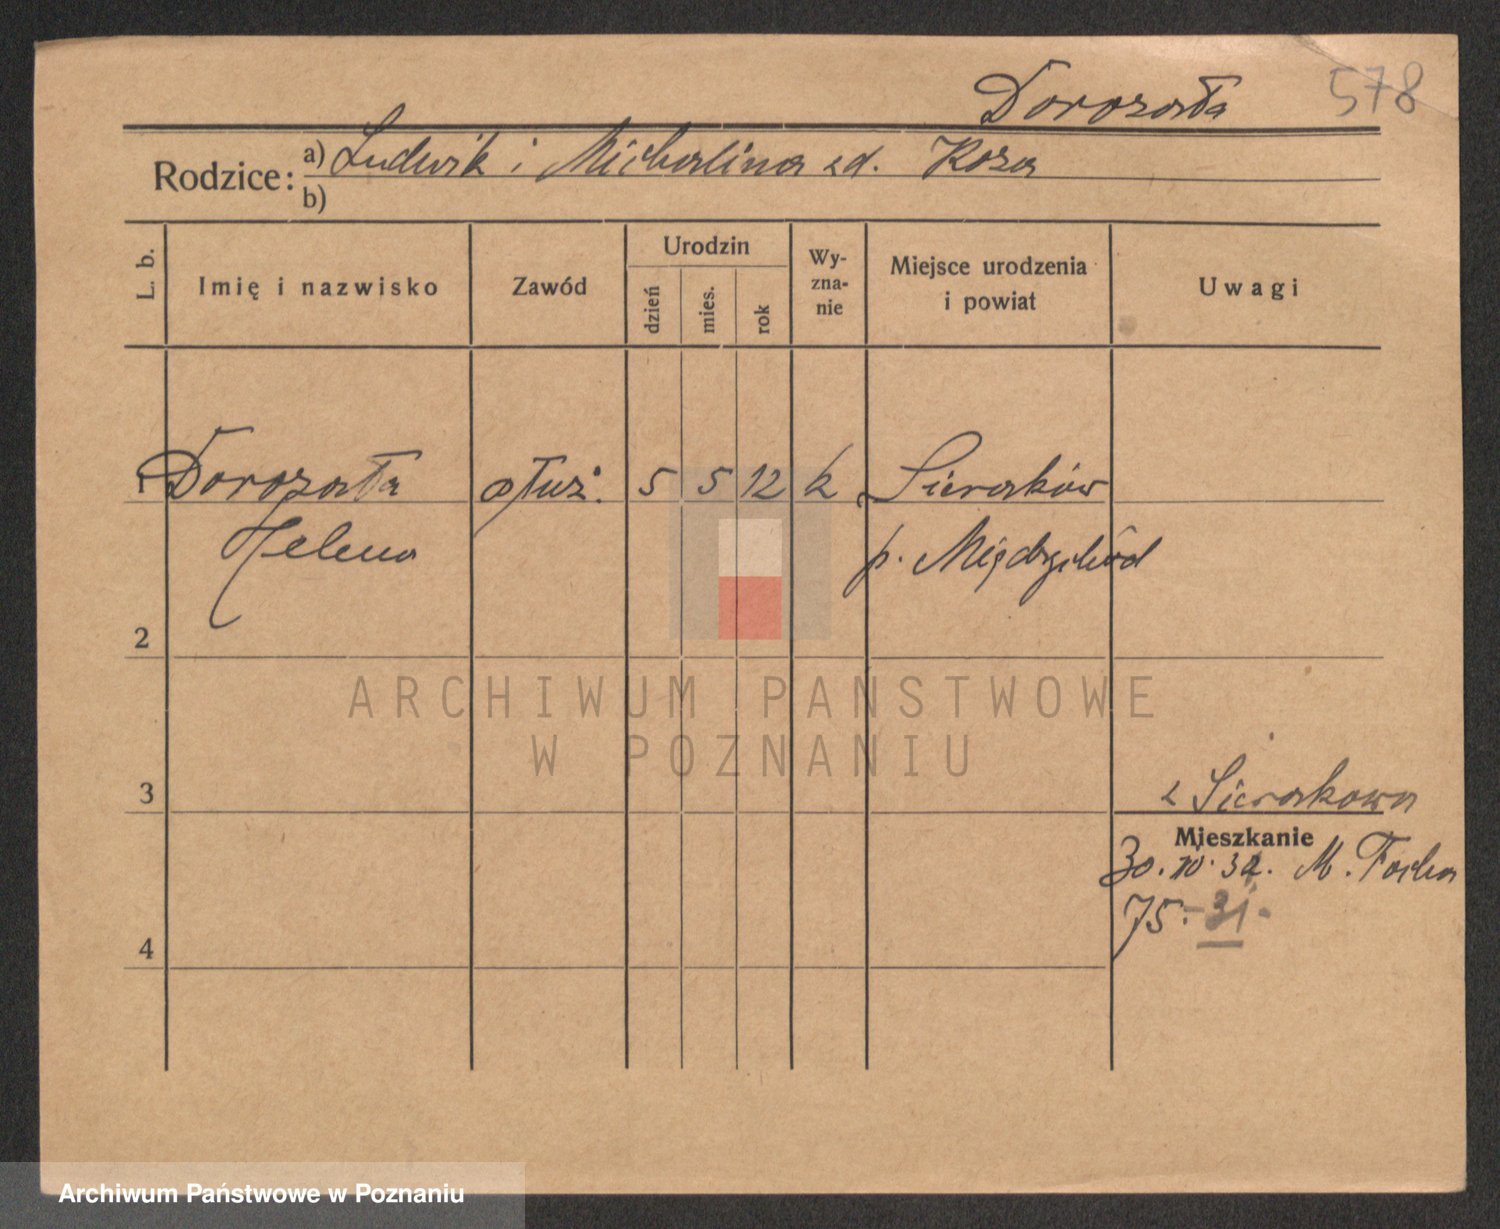 Dorozała 578
Rodzice: a) Ludwik i Michalina zd. Koza
b)
L. b. Imię i nazwisko Zawód Urodzin dzień mies. rok Wyznanie Miejsce urodzenia i powiat Uwagi
1 Dorozała służ. 5 5 12 k Sieraków
Helena p. Międzychód
2
ARCHIWUM PANSTWOWE
W POZNANIU
3 z Sierakowa
Mieszkanie
30. M. Focha
75.-31-
4
Archiwum Państwowe w Poznaniu